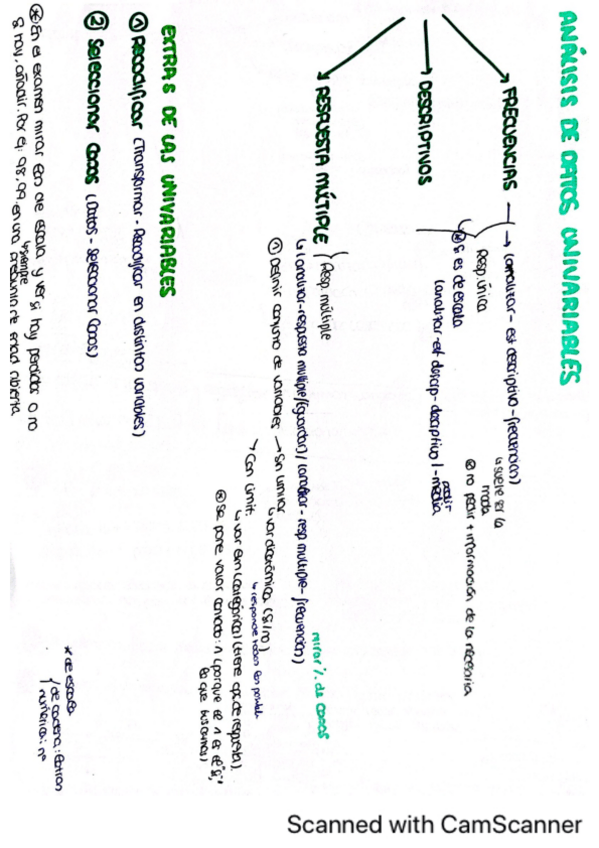 ANÁLISIS DE DATOS UNIVARIABLES
FRECUENCIAS → (analizar - est descriptivo - frecuencia)
↳ suele ser la moda
Resp. única
⊛ no pedir + información de la necesaria
DESCRIPTIVOS
⊛ Si es de escala
(analizar - descriptivo) - media
pedir
RESPUESTA MÚLTIPLE
Resp. múltiple
↳ (analizar - respuesta multiple) (guardar) / (analizar - resp multiple - frecuencia)
mirar % de casos
① Definir conjunto de variables → Sin limitar
↳ var dicotómica (si/no)
↳ responde todas las
→ Con limit.
↳ var cat (categórica) (tiene op. de respuesta).
⊛ Se pone valor contado: 1 (porque el 1 es el "si", lo que buscamos)
EXTRAS DE LAS UNIVARIABLES
① Recodificar (Transformar - Recodificar en distintas variables)
② Seleccionar casos (Datos - seleccionar casos)
⊛ En el examen mirar de escala y ver si hay perdidos o no
siempre
Si hay, añadir. Por ej: 98, 99 en una pregunta de edad abierta
* de escala
de cadena:
numérica: nº
Scanned with CamScanner